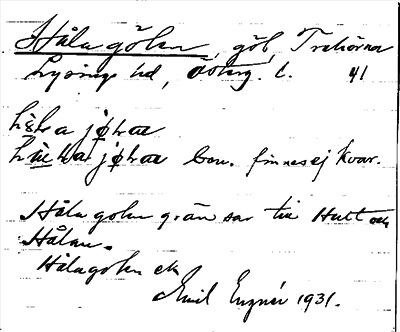 Hålagölen, göl, Trehörna
Lysings hd, Österg. l. 41
håla jøhan
håla jøhan ben. finnes ej kvar.
Hålagölen gränsar till Hult och
Hålan.
Hålagölen ek
Emil Engnér 1931.